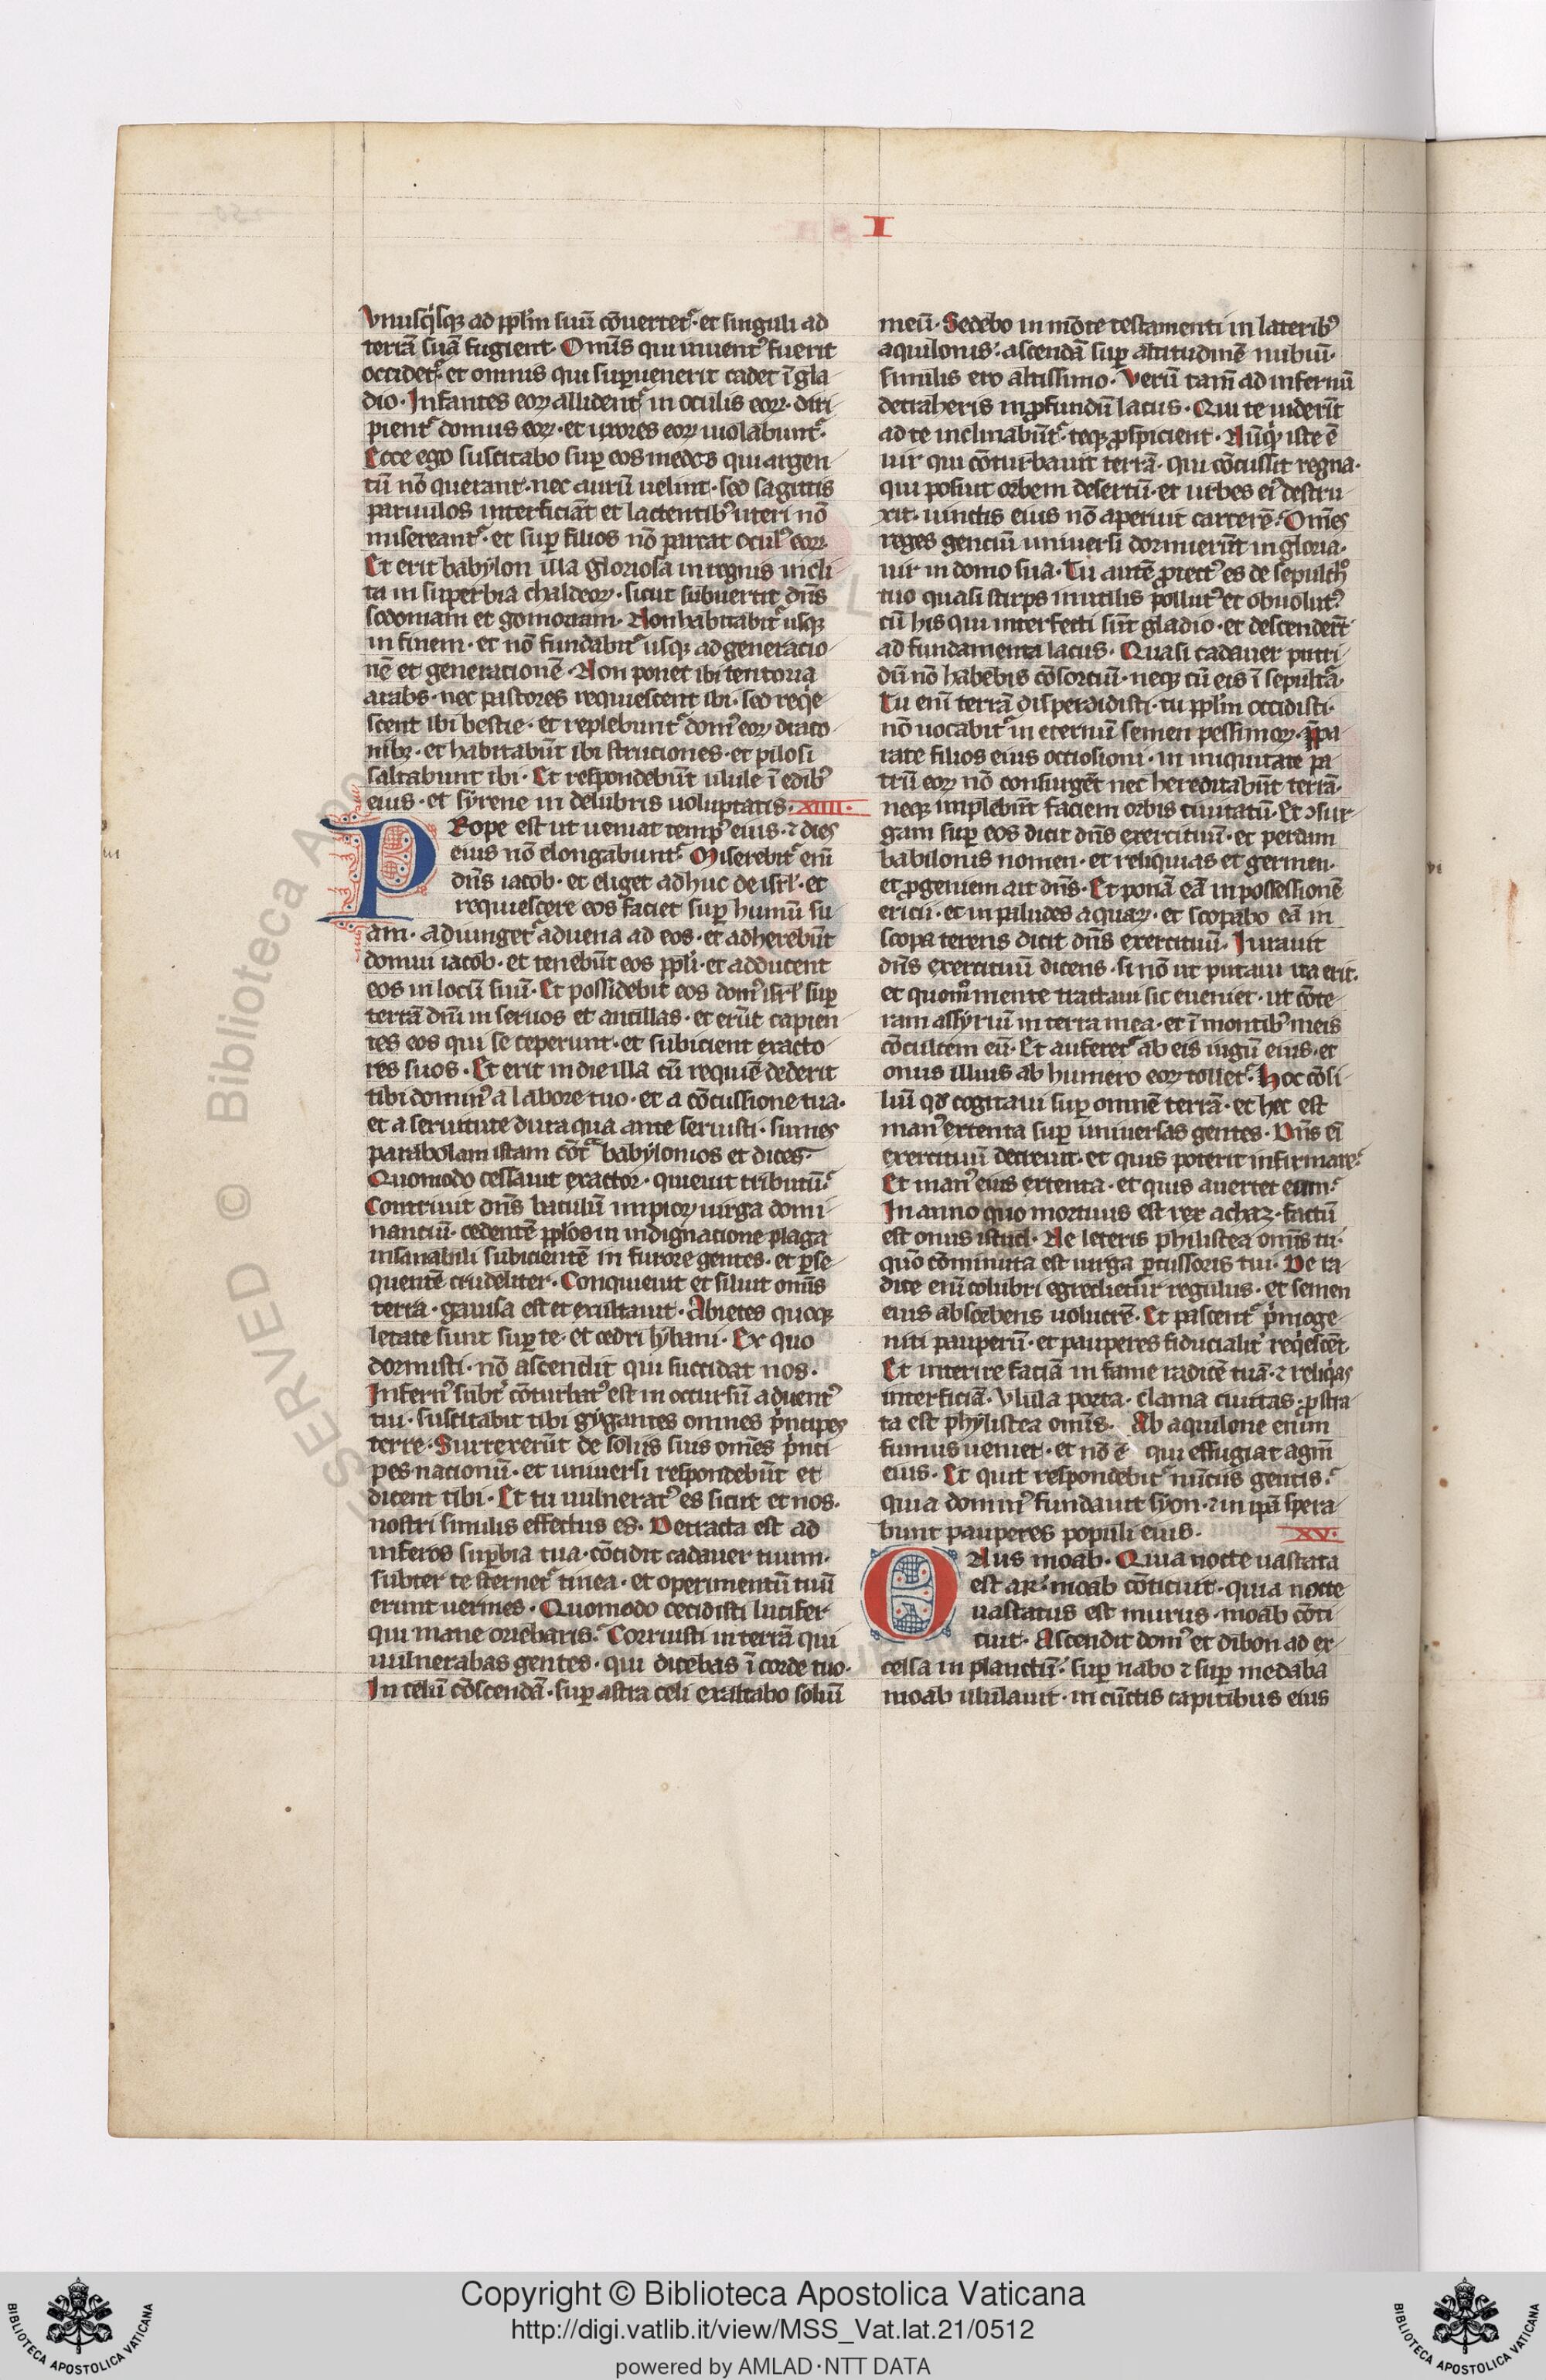 I
Vnusq̇sq; ad pplm̄ suū cōuertetᷣ· et singuli ad
terrā suā fugient· Omīs qui inuentꝰ fuerit
occidetᷣ· et omnis qui suꝑuenerit cadet ī gla
dio· Infantes eoꝝ allidentᷣ in oculis eoꝝ· diri
pientᷣ domus eoꝝ· et uxores eoꝝ uiolabuntᷣ·
Ecce ego suscitabo suꝑ eos medos qui argen
tū nō querant· nec aurū uelint· sed sagittis
paruulos interficiāt et lactentibꝰ uteri nō
misereantᷣ· et suꝑ filios nō parcat oculꝰ eoꝝ·
Et erit babylon illa gloriosa in regnis incli
ta in superbia chaldeoꝝ· sicut subuertit dn̄s
sodomam et gomorram· Non habitabitᷣ usq;
in finem· et nō fundabitᷣ usq; ad generatio
nē et generationē· Non ponet ibi tentoria
arabs· nec pastores requiescent ibi· sed reqͥe
scent ibi bestie· et replebuntᷣ domꝰ eoꝝ draco
nibꝫ· et habitabūt ibi struciones· et pilosi
saltabunt ibi· Et respondebūt ulule ī edibꝰ
eius· et syrene in delubris uoluptatis· XIIII·
PRope est ut ueniat tempꝰ eius· ⁊ dies
eius nō elongabuntᷣ· Miserebitᷣ eni̅
dn̄s iacob· et eliget adhuc de isrl̄· et
requiescere eos faciet suꝑ humū su
am· adiungetᷣ aduena ad eos· et adherebūt
domui iacob· et tenebūt eos ppl̄i· et adducent
eos in locū suū· Et possidebit eos domꝰ isrl̄ suꝑ
terrā dn̄i in seruos et ancillas· et erūt capien
tes eos qui se ceperunt· et subicient exacto
res suos· Et erit in die illa cū requiē dederit
tibi dominꝰ a labore tuo· et a cōcussione tua·
et a seruitute dura qua ante seruisti· sumes
parabolam istam cōtᷓ babylonios et dices·
Quomodo cessauit exactor· quieuit tributū·
Contriuit dn̄s baculū impioꝝ uirga domi
nantiū· cedentē ppl̄os in indignacione plaga
insanabili subicientē in furore gentes· et ꝑse
quentē crudeliter· Conquieuit et siluit omīs
terra· gauisa est et exultauit· Abietes quoq;
letate sunt suꝑ te· et cedri lybani· Ex quo
dormisti· nō ascendit qui succidat nos·
Infernꝰ subtᷣ cōturbatꝰ est in occursū aduentꝰ
tui· suscitabit tibi gygantes omnes pͥncipes
terre· Surrexerūt de soliis suis omēs pͥnci
pes nacionū· et uniuersi respondebūt et
dicent tibi· Et tu uulneratꝰ es sicut et nos·
nostri similis effectus es· Detracta est ad
inferos suꝑbia tua· cōcidit cadauer tuum·
subter te sternetᷣ tinea· et operimentū tuū
erunt uermes· Quomodo cecidisti lucifer
qui mane oriebaris· Corruisti in terrā qui
uulnerabas gentes· qui dicebas ī corde tuo·
In celū cōscendā· suꝑ astra celi exaltabo soliū
meū· Sedebo in mōte testamenti in lateribꝰ
aquilonis· ascendā suꝑ altitudinē nubiū·
similis ero altissimo· Verū tam̄ ad infernū
detraheris in ꝓfundū lacus· Qui te uiderīt
ad te inclinabūtᷣ· teq; ꝓspicient· Nūqͥd iste ē
uir qui cōturbauit terrā· qui cōcussit regna·
qui posuit orbem desertū· et urbes eiꝰ destru
xit· uinctis eius nō aperuit carcerē· Omēs
reges genciū uniuersi dormierūt in gloria·
uir in domo sua· Tu autē ꝓiectꝰ es de sepulch̊
tuo quasi stirps inutilis pollutꝰ et obuolutꝰ
cū his qui interfecti sūt gladio· et descenderūt
ad fundamenta lacus· Quasi cadauer putri
dū nō habebis cōsortiū· neq; cū eis ī sepultᷓa·
Tu eni̅ terrā disperdidisti· tu ppl̄m occidisti·
nō uocabitᷣ in eternū semen pessimoꝝ· p̄pa
rate filios eius occisioni· in iniquitate pa
trū eoꝝ nō consurgēt nec hereditabūt terrā·
neq; implebūt faciem orbis ciuitatū· Et ↄsur
gam suꝑ eos dicit dn̄s exercituū· et perdam
babilonis nomen· et reliquias et germen·
et ꝓgeniem ait dn̄s· Et ponā eā in possessionē
ericii· et in paludes aquaꝝ· et scopabo eā in
scopa terens dicit dn̄s exercituū· Iurauit
dn̄s exercituū dicens· si nō ut putaui ita erit·
et quom̊ mente tractaui sic eueniet· ut cōte
ram assyriū in terra mea· et ī montibꝰ meis
cōculcem eū· Et auferetᷣ ab eis iugū eius· et
onus illius ab humero eoꝝ tolletᷣ· Hoc cōsi
liū qd̄ cogitaui suꝑ omnē terrā· et hec est
manꝰ extenta suꝑ uniuersas gentes· Dn̄s ei̅
exercituū decreuit· et quis poterit infirmare·
Et manꝰ eius extenta· et quis auertet eum·
In anno quo mortuus est rex achaz· factū
est onus istud· Ne leteris philistea omīs tu·
quō cōminuta est uirga ꝑcussoris tui· De ra
dice eni̅ colubri egredietur regulus· et semen
eius absorbens uolucrē· Et pascentᷣ pͥmoge
niti pauperū· et pauperes fiducialitᷣ reqͥescēt·
Et interire faciā in fame radicē tuā· ⁊ reliqͥas
interficiā· Vlula porta· clama ciuitas· ꝓstra
ta est phylistea omīs· Ab aquilone enim
fumus ueniet· et nō ē qui effugiat agm̄
eius· Et quit respondebitᷣ nūciis gentis·
quia dominꝰ fundauit syon· ⁊ in ip̄a spera
bunt pauperes populi eius· XV·
ONus moab· Quia nocte uastata
est ar· moab cōticuit· quia nocte
uastatus est murus· moab cōti
cuit· Ascendit domꝰ et dibon ad ex
celsa in planctū· suꝑ nabo ⁊ suꝑ medaba
moab ululauit· in cūctis capitibus eius
Copyright © Biblioteca Apostolica Vaticana
http://digi.vatlib.it/view/MSS_Vat.lat.21/0512
powered by AMLAD·NTT DATA
BIBLIOTECA APOSTOLICA VATICANA
BIBLIOTECA APOSTOLICA VATICANA